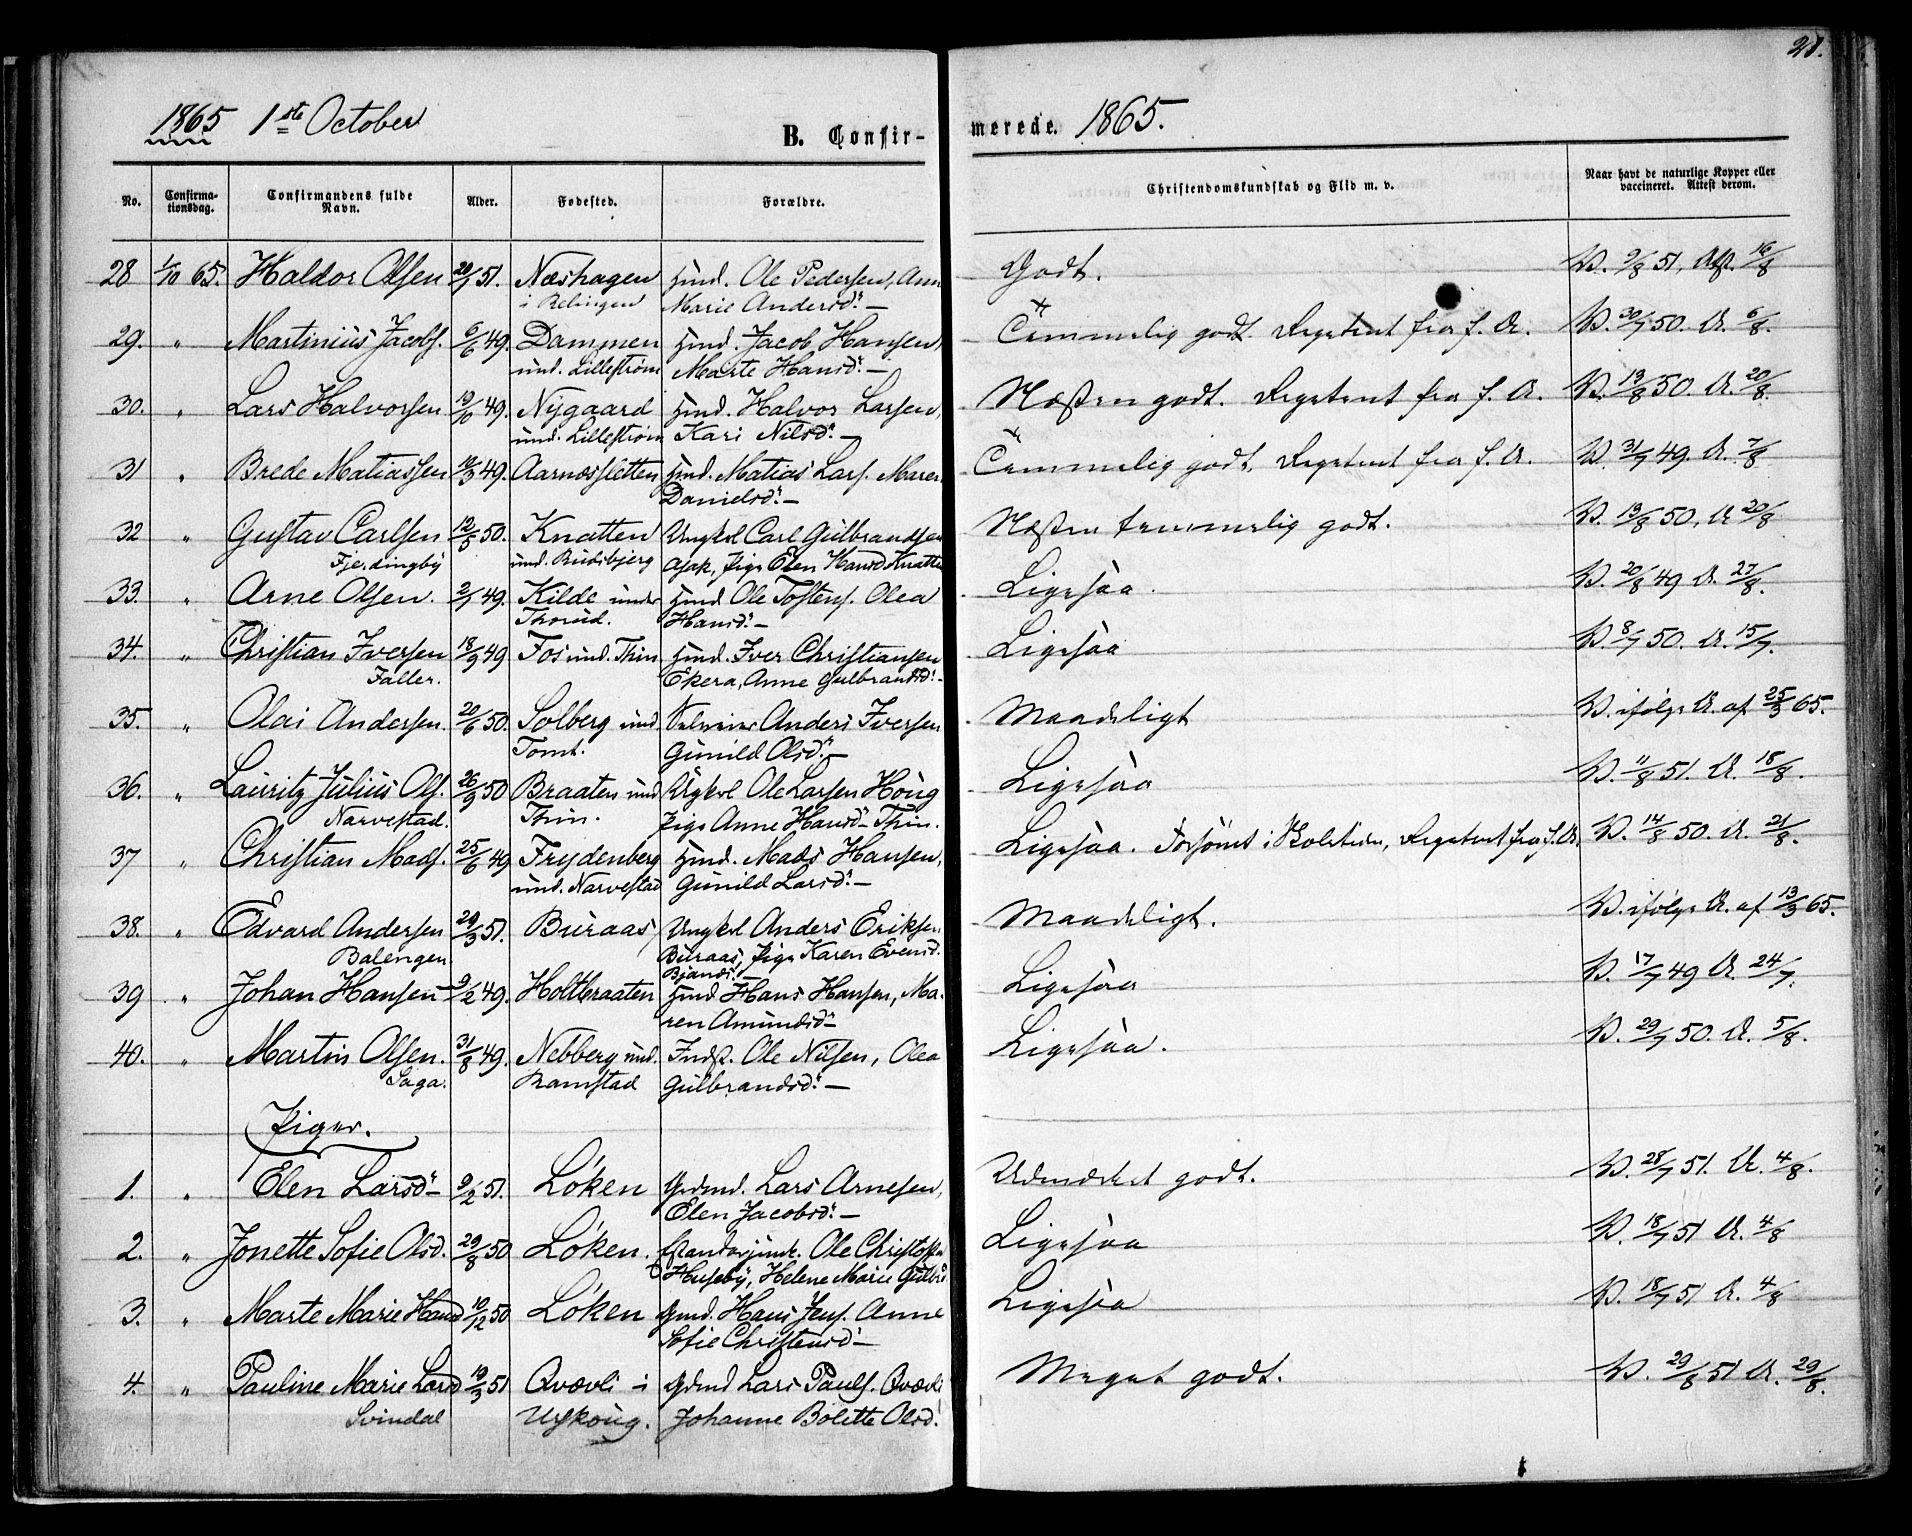 28.
1865 1st October
B. Confir-
merede. 1865.
No.
Confirma-
tionsdag.
Confirmandens fulde
Navn.
Alder.
Fødested.
Forældre.
Christendomskundskab og Flid m. v.
Naar havt de naturlige Kopper eller
vaccineret. Attest derom.
28 1/10 65. Haldor Olsen 51. Næshagen Hmd. Ole Pedersen, Ann Godt. V. 9/8 51, Att. 16/8
i Relingen Marie Andersd: –
29. " Martinius Jacobs. 6/6 49. Dammen Hmd. Jacob Hansen, Temmelig godt. Repetent fra f. A. V. 30/7 50. A. 6/8.
und. Lillestrøm Marte Hansd: –
30. " Lars Halvorsen 49. Nygaard Hmd. Halvor Larsen, Næsten godt. Repetent fra f. A. V. 13/8 50. A. 20/8.
und. Lillestrøm Kari Nilsd: –
31 " Brede Matiassen 49. Aarnæssletten Hmd. Matias Lars. Maren Temmelig godt. Repetent fra f. A. V. 31/7 49. A. 7/8
Danielsd: –
32 " Gustav Carlsen 50. Knatten Ungkl Carl Gulbrandsen Næsten temmelig godt. V. 13/8 50, A 20/8
Fjerdingby und. Rudsbjerg Asak, Pige Elen Hansd Knatten
33. " Arne Olsen. 49. Kilde under Hmd Ole Tostens. Olea Ligesaa. V. 20/8 49 A. 27/8.
Thorud. Hansd: –
34. " Christian Iversen 18/9 49 Fos und. Thin Hmd. Iver Christiansen Ligesaa V. 8/7 50. A. 15/7.
Faller. Ekera, Anne Gulbrandsd: –
35. " Olai Andersen. 20/6 50. Solberg und. Anders Iversen Maadeligt V. ifølge A. af 25/3 65.
Tomt. Gunild Olsd: –
36. " Lauritz Julius Ols. 26/9 50 Braaten und Ugkl Ole Larsen Høug Ligesaa V. 11/8 51. A. 18/8.
Narvestad. Thin. Pige Anne Hansd – Thin.
37 " Christian Mads. 25/6 49 Frydenberg Hmd. Mads Hansen, Ligesaa. Forsømt i Skoletiden, Repetent fra f. A. V. 14/8 50. A. 21/8.
und. Narvestad Gunild Larsd: –
38. " Edvard Andersen 29/3 51. Buraas Ungkl Anders Eriksen Maadeligt. V. ifølge A. af 13/3 65.
Balengen Buraas, Pige Karen Evensd.
39 " Johan Hansen 9/2 49. Holtbraaten Hmd Hans Hansen, Ma- Ligesaa V. 17/7 49 A. 24/7.
ren Amundsd –
40. " Martin Olsen. 31/8 49. Nebberg und. Indst. Ole Nilsen, Olea Ligesaa. V. 29/7 50. A. 5/8.
Saga. Ramstad Gulbrandsd: –
Piger.
1. " Elen Larsd – 9/2 51. Løken Grdmd. Lars Arnesen, Udmærket godt. V. 28/7 51. A. 4/8.
Elen Jacobsd: –
2. " Jonette Sofie Olsd. 29/8 50 Løken. Ole Christoffe Ligesaa V. 18/7 51 A. 4/8
Huseby, Helene Marie Gulbr
3. " Marte Marie Hansd 19/12 50 Løken Gmd. Hans Jens. Anne Ligesaa V. 18/7 51 A. 4/8
Sofie Christensd –
4. " Pauline Marie Larsd 19/3 51 Qvævli i Grdmd Lars Pauls. Qvævli Meget godt. V. 29/8 51 A. 29/8.
Svindal Urskoug. Johanne Bolette Olsd.